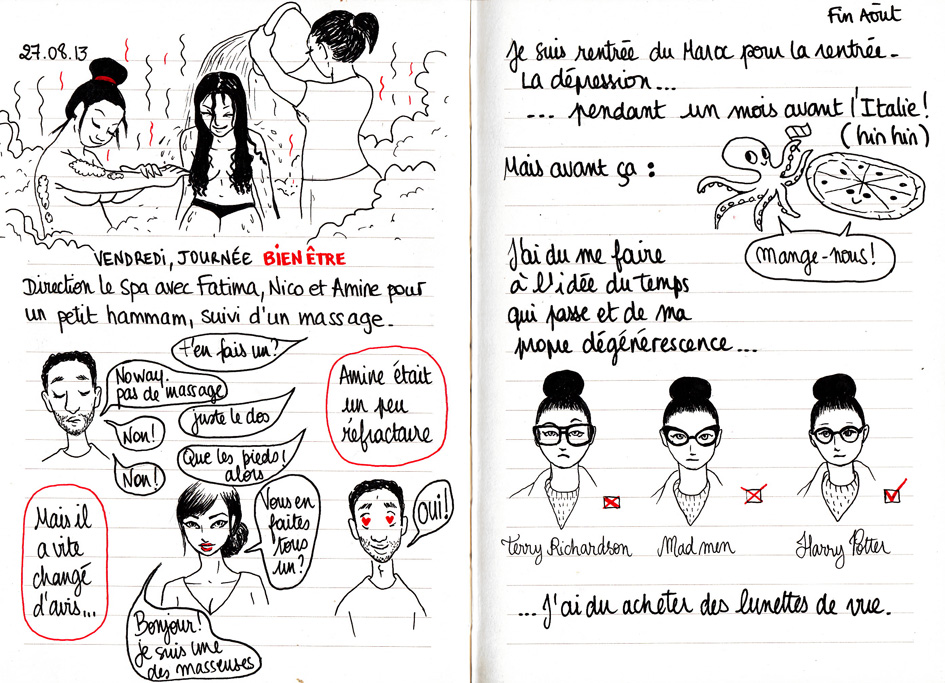 27.08.13
VENDREDI, JOURNÉE BIEN ÊTRE
Direction le Spa avec Fatima, Nico et Amine pour
un petit hammam, suivi d'un massage.
t'en fais un?
No way.
pas de massage
juste le dos
Non!
Que les pieds!
alors
Non!
Amine était
un peu
réfractaire
Mais il
a vite
changé
d'avis...
Bonjour!
je suis une
des masseuses
Vous en
faites
tous
un?
Oui!
Fin Août
Je suis rentrée du Maroc pour la rentrée.
La dépression...
... pendant un mois avant l'Italie!
(hin hin)
Mais avant ça :
Mange-nous!
J'ai du me faire
à l'idée du temps
qui passe et de ma
propre dégénérescence...
Terry Richardson
Mad men
Harry Potter
... J'ai du acheter des lunettes de vue.